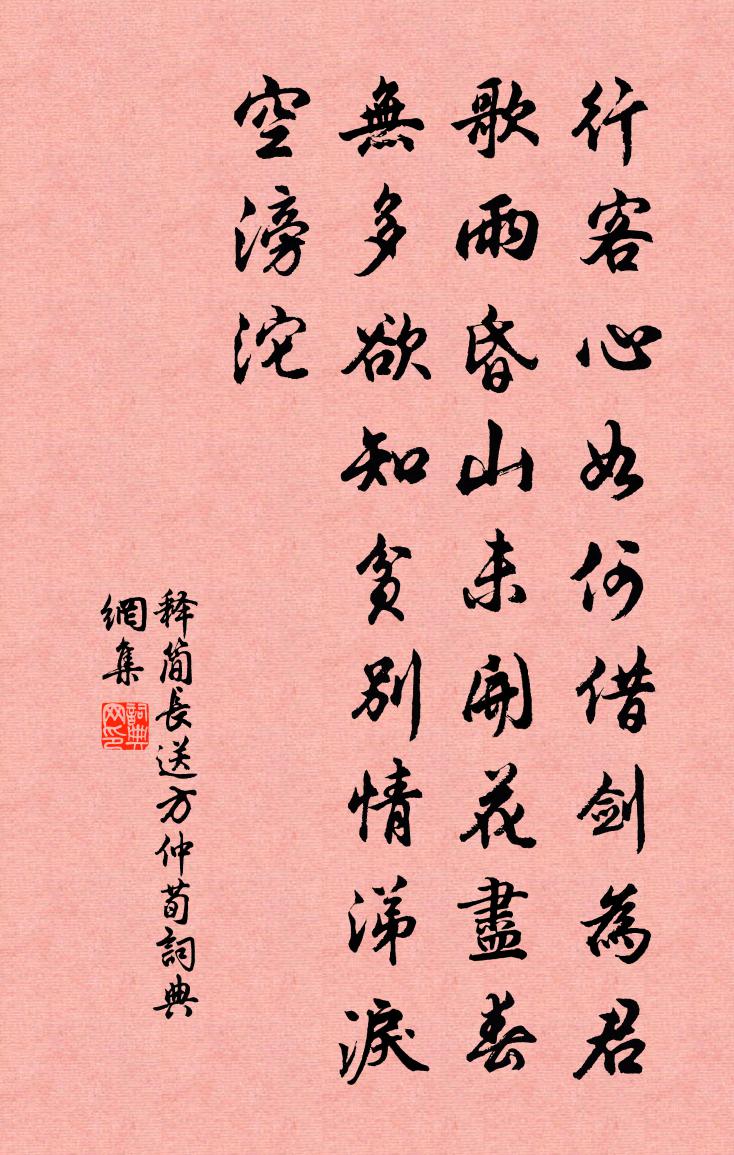 行客心如何借剑為君
歌雨昏山未開花盡春
無多欲知貧別情涕淚
空滂沱
释简長送方仲荀詞典
網集
詞典
网印